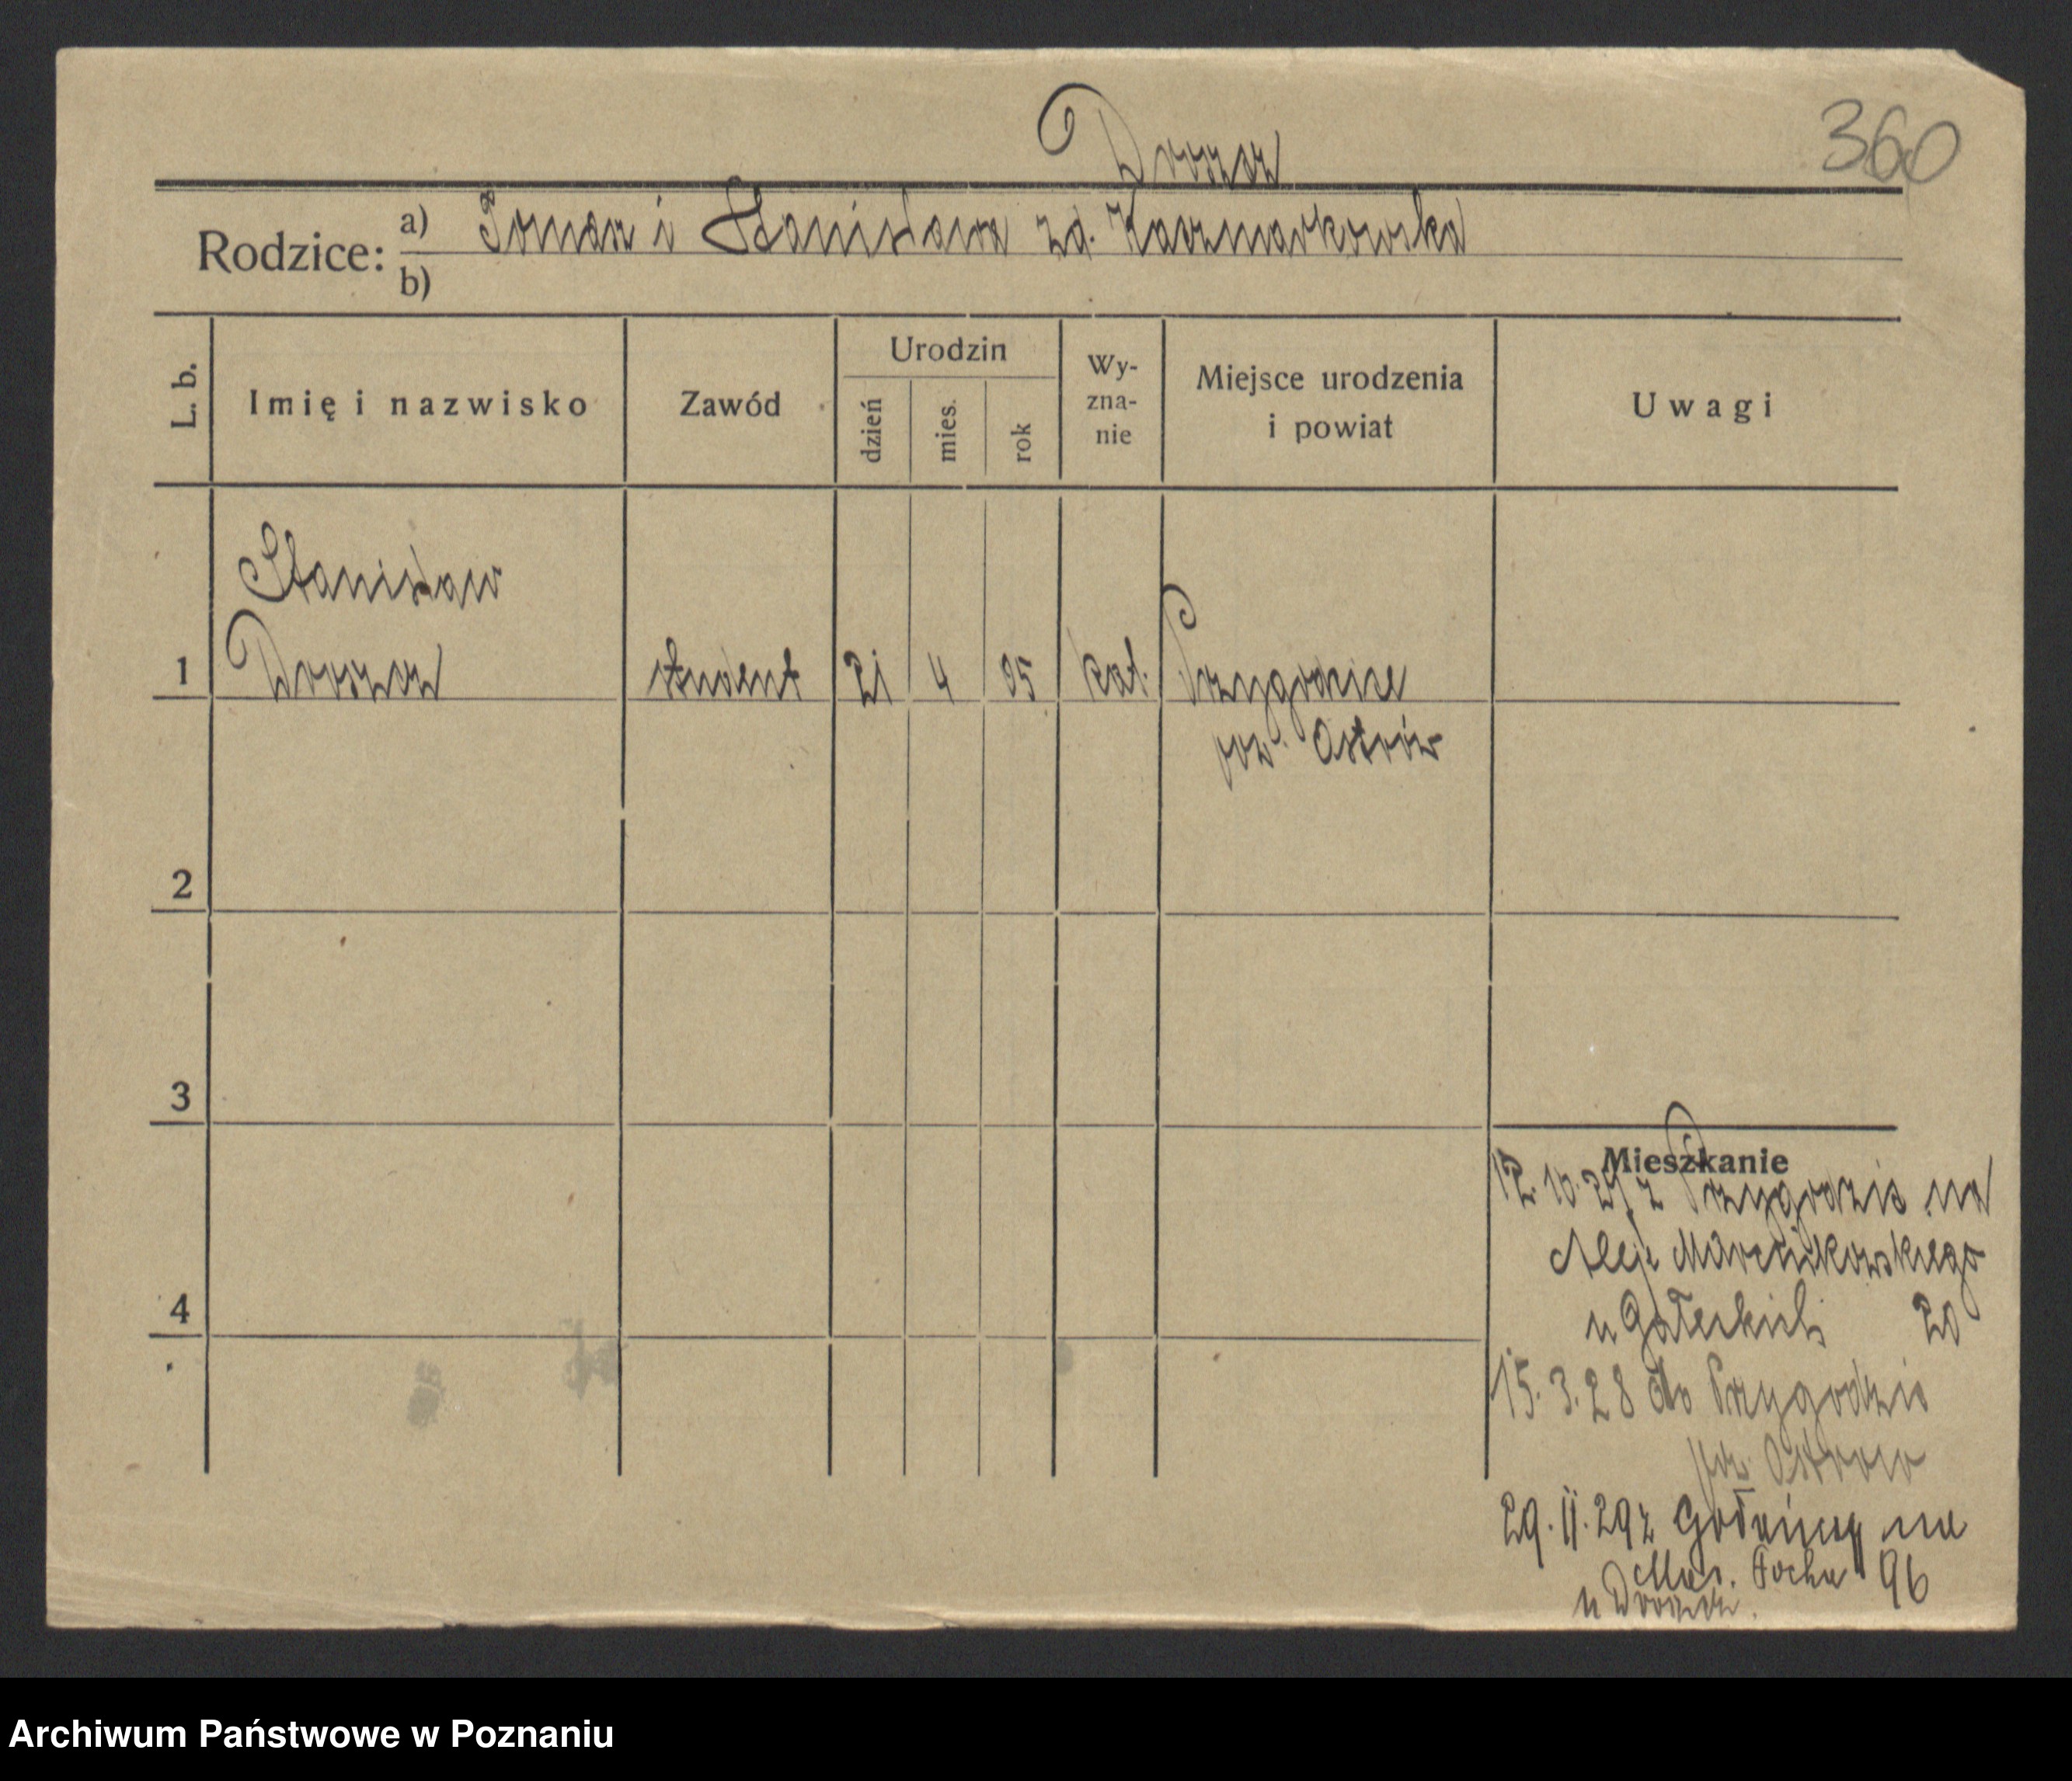 Drożdż
360
Rodzice: a) Tomasz i Stanisława zd. Kaczmarkowska
b)
L. b.
Imię i nazwisko
Zawód
Urodzin
dzień
mies.
rok
Wy-
zna-
nie
Miejsce urodzenia
i powiat
Uwagi
Stanisław
1 student 21 4 05 kat. Przygodzice
pow. Ostrów
2
3
Mieszkanie
12.10.27 z Przygodzic na
Aleje Marcinkowskiego
4
u Gałeckich 20
15.3.28 do Przygodzic
pow. Ostrów
29. 29 z na
Mar. Focha 96
u
Archiwum Państwowe w Poznaniu